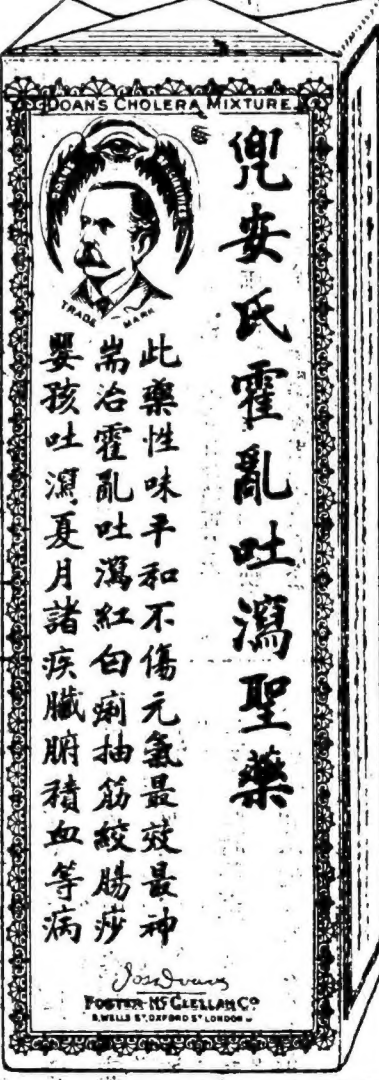 DOAN'S CHOLERA MIXTURE
TRADE MARK
兜安氏霍亂吐瀉聖藥
此藥性味平和不傷元氣最效最神
耑治霍亂吐瀉紅白痢抽筋絞腸莎
嬰孩吐瀉夏月諸疾臟腑積血等病
FOSTER-McCLELLAN Co
8, WELLS ST, OXFORD ST LONDON W